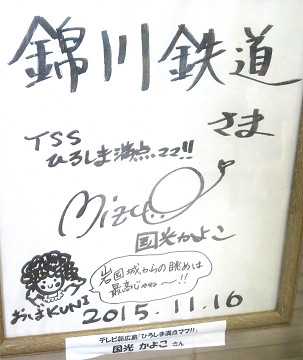 錦川鉄道
さま
TSS
ひろしま満点ママ!!
Mizu
国光かよこ
岩国城からの眺めは
最高じゃわ〜!!
おしまKUNI
2015.11.16
テレビ新広島「ひろしま満点ママ!!」
国光 かよこ さん